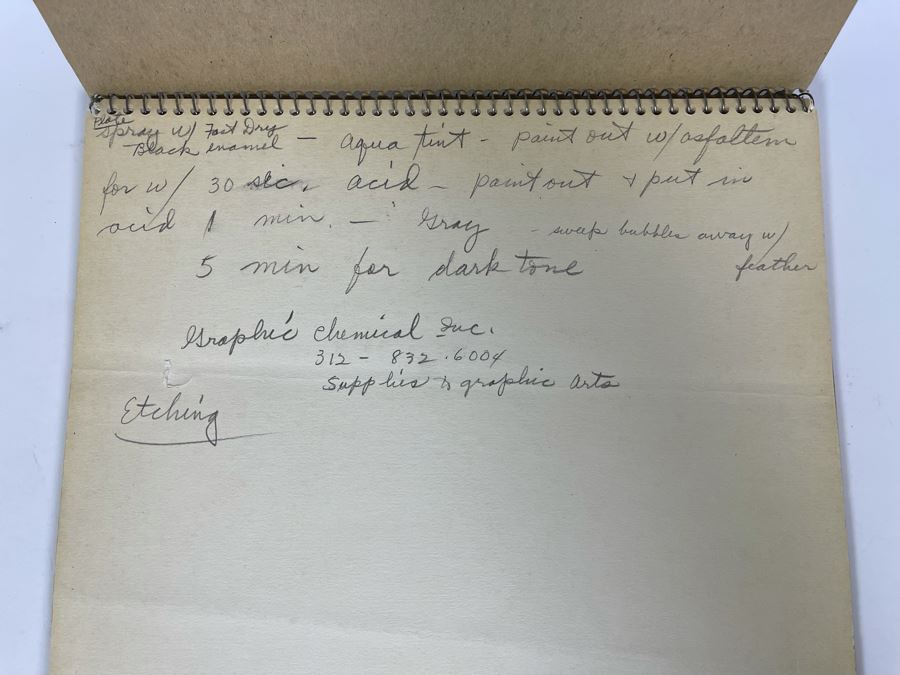 Plate
Spray w/ Fast Dry
Black enamel — aqua tint - paint out w/asfaltem
for w/ 30 sec. acid - paint out + put in
acid 1 min. — Gray - sweep bubbles away w/
feather
5 min for dark tone
Graphic Chemical Inc.
312 - 832.6004
Supplies & graphic arts
Etching